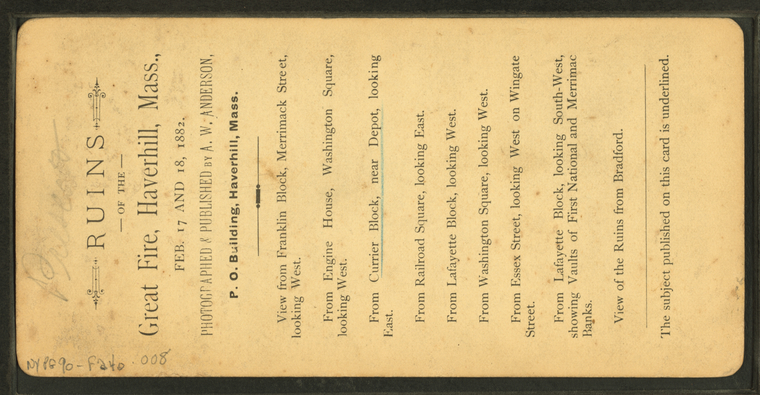 RUINS
— OF THE —
Great Fire, Haverhill, Mass.,
FEB. 17 AND 18, 1882,
PHOTOGRAPHED & PUBLISHED BY A. W. ANDERSON,
P. O. Building, Haverhill, Mass.
View from Franklin Block, Merrimack Street,
looking West.
From Engine House, Washington Square,
looking West.
From Currier Block, near Depot, looking
East.
From Railroad Square, looking East.
From Lafayette Block, looking West.
From Washington Square, looking West.
From Essex Street, looking West on Wingate
Street.
From Lafayette Block, looking South-West,
showing Vaults of First National and Merrimac
Banks.
View of the Ruins from Bradford.
The subject published on this card is underlined.